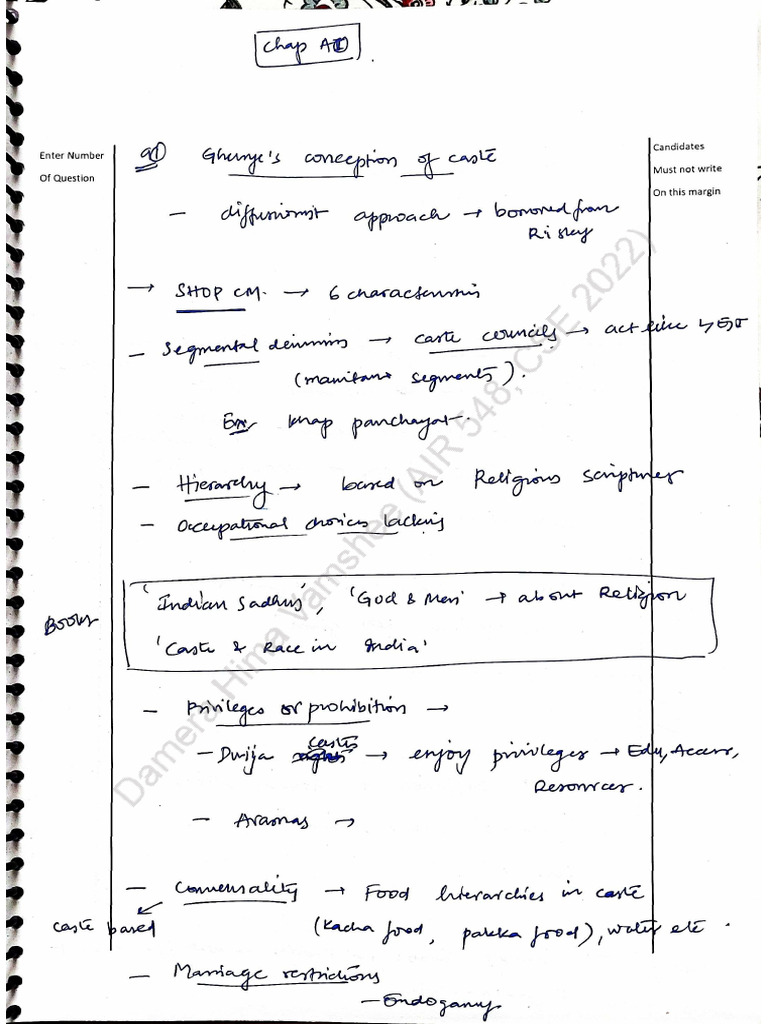 Chap A1
Enter Number
Of Question
Candidates
Must not write
On this margin
Q1 Ghurye's conception of caste
- diffusionist approach → borrowed from
Risley
→ SHOP CM. → 6 characteristics
- Segmental divisions → caste councils → act like
(maintain segments).
Ex: Khap panchayat.
- Hierarchy → based on Religious Scriptures
- Occupational choices lacking
Books
'Indian Sadhus', 'God & Men' → about Religion
'Caste & Race in India'
- Privileges or prohibition →
- Dwija castes → enjoy privileges → Edu, Access,
Resources.
- Avarnas →
- Commensality → Food hierarchies in caste
caste based
(kacha food, pakka food), water etc.
- Marriage restrictions
- Endogamy
Damera Hima Vamshee (AIR 548, CSE 2022)